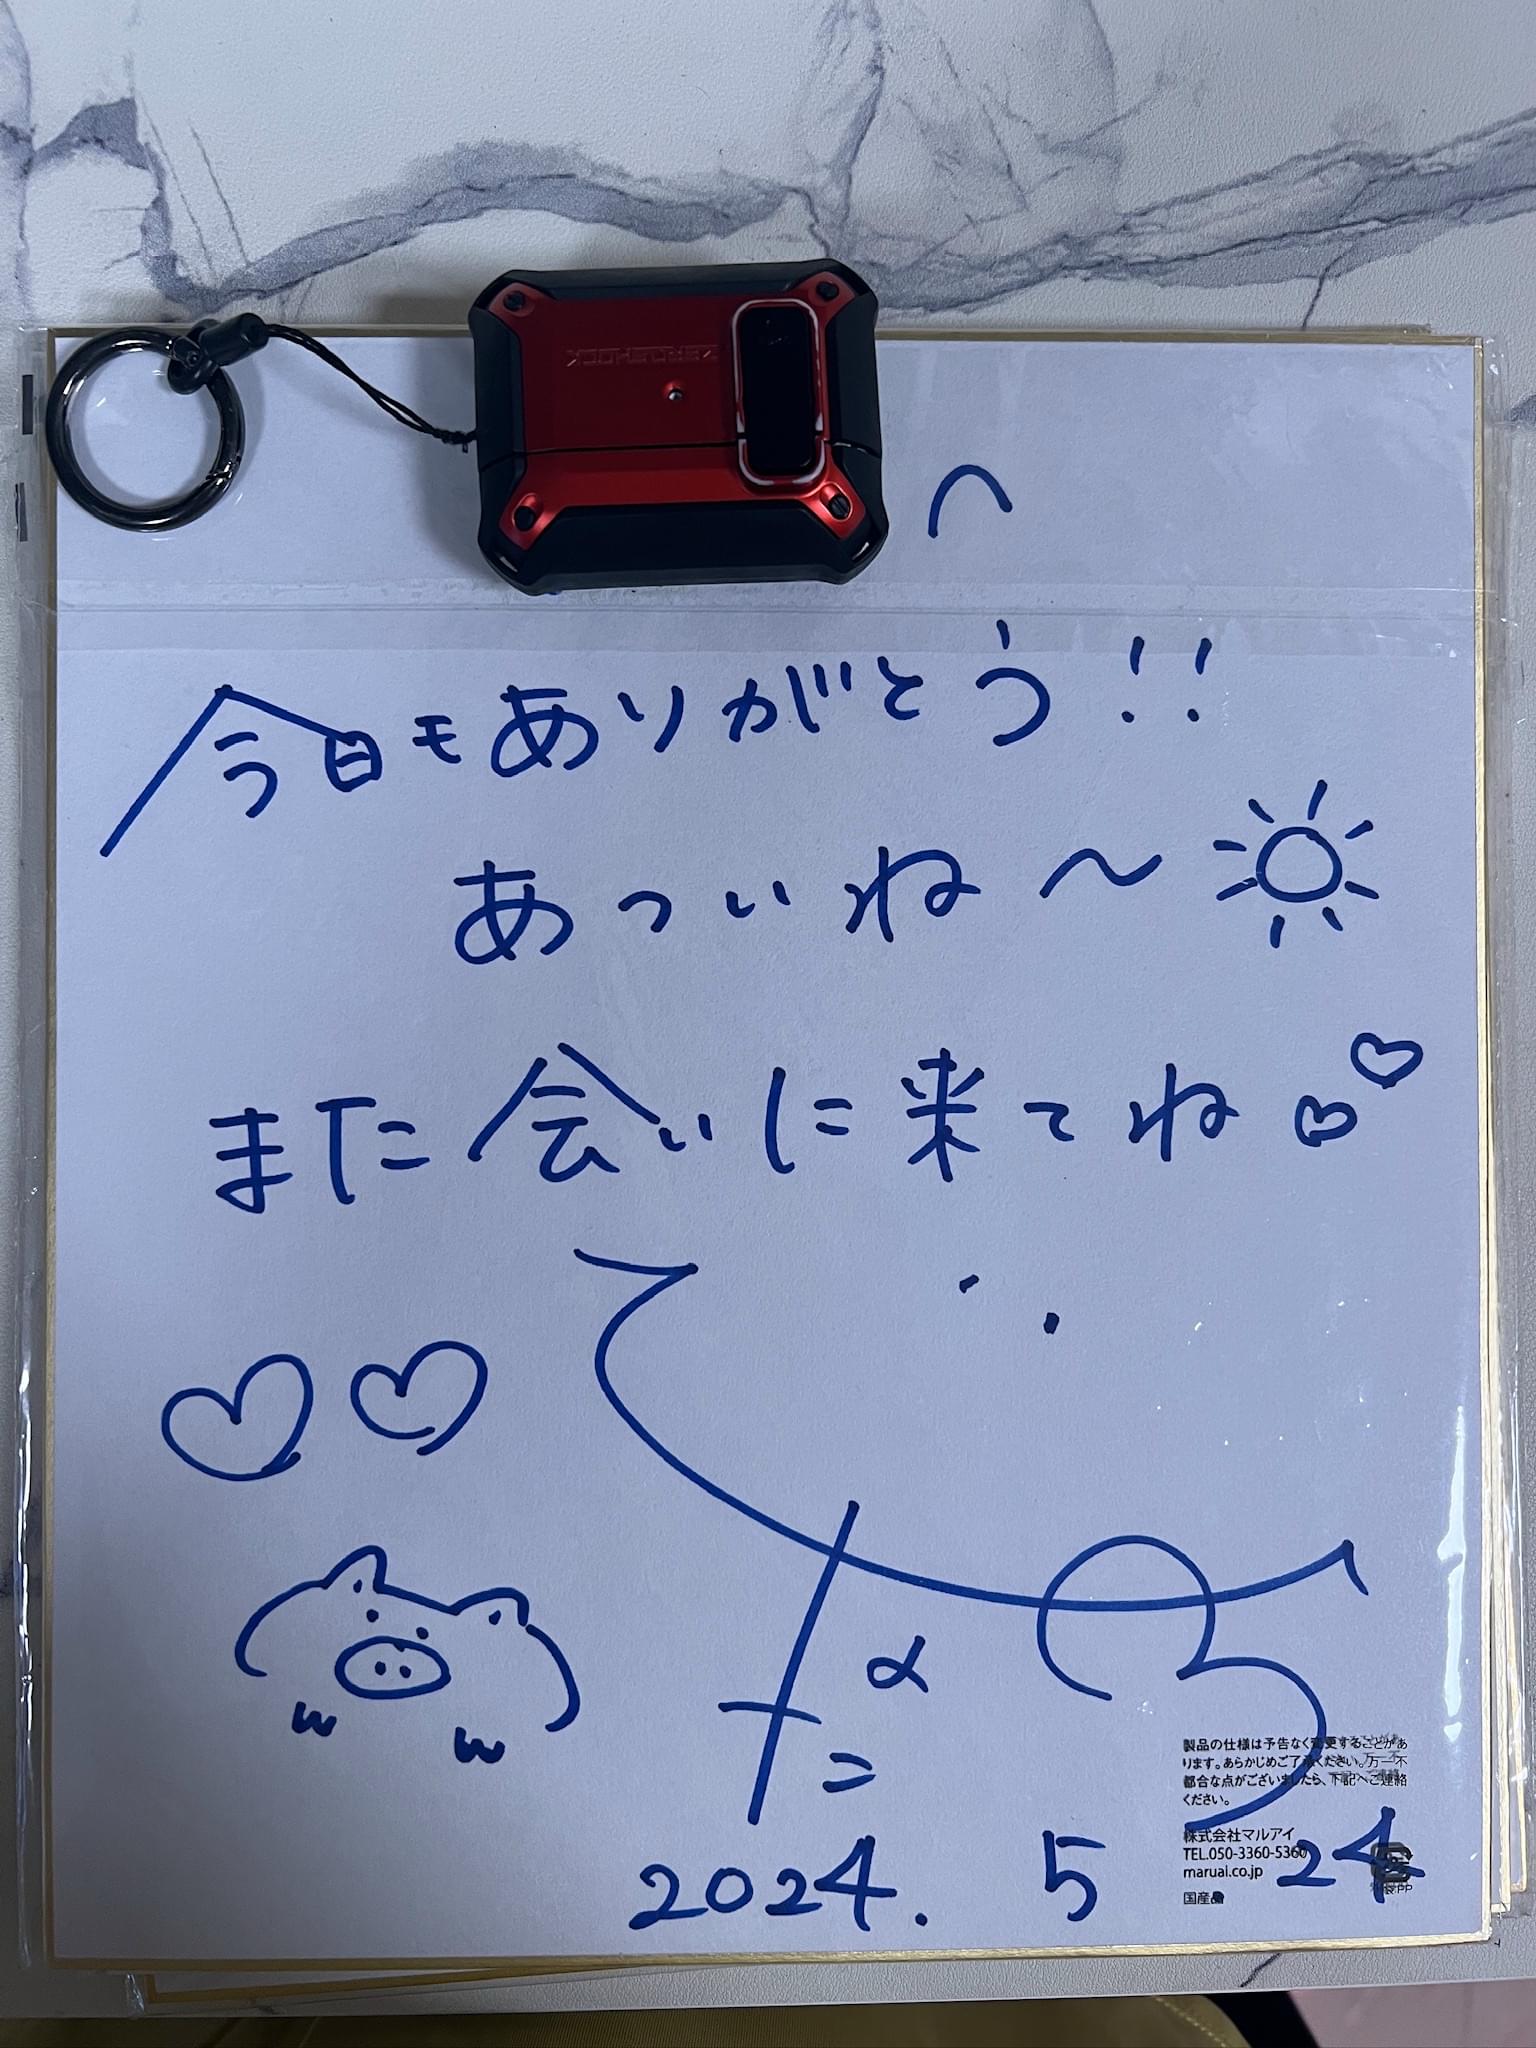 へ
今日もありがとう!!
あついね〜
また会いに来てね
2024. 5 24
製品の仕様は予告なく変更することがあ
ります。あらかじめご了承ください。万一不
都合な点がございましたら、下記へご連絡
ください。
株式会社マルアイ
TEL.050-3360-5360
maruai.co.jp
国産品